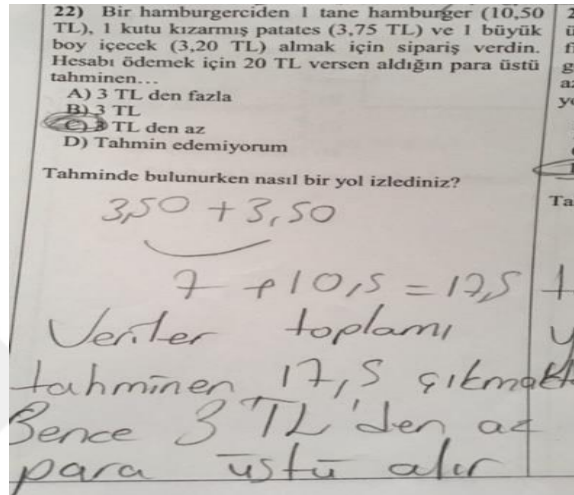 22) Bir hamburgerciden 1 tane hamburger (10,50
TL), 1 kutu kızarmış patates (3,75 TL) ve 1 büyük
boy içecek (3,20 TL) almak için sipariş verdin.
Hesabı ödemek için 20 TL versen aldığın para üstü
tahminen…
A) 3 TL den fazla
B) 3 TL
C) 3 TL den az
D) Tahmin edemiyorum
Tahminde bulunurken nasıl bir yol izlediniz?
3,50 + 3,50
7 + 10,5 = 17,5
Veriler toplamı
tahminen 17,5 çıkmakt
Bence 3 TL'den az
para üstü alır
Ta